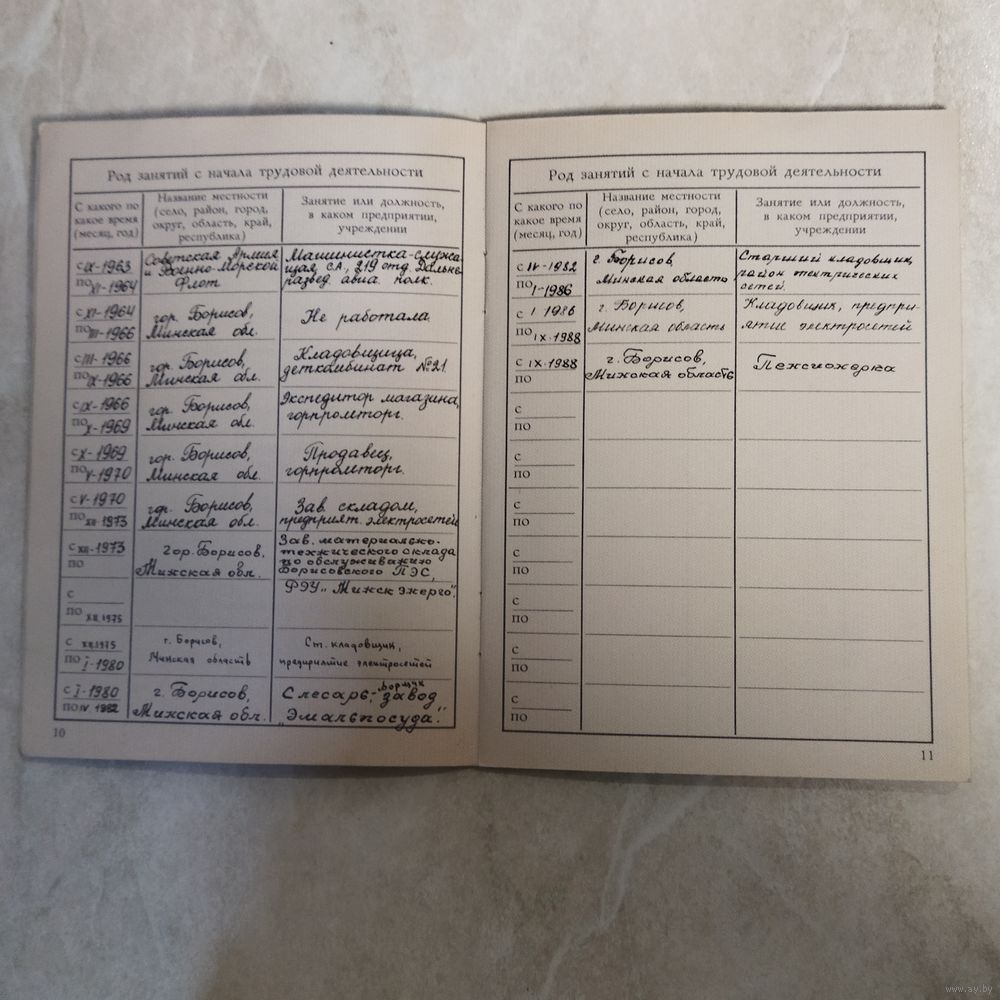 Род занятий с начала трудовой деятельности
С какого по какое время (месяц, год)
Название местности (село, район, город, округ, область, край, республика)
Занятие или должность, в каком предприятии, учреждении
с IX-1963
по XI-1964
Советская Армия
и Военно-Морской
Флот
Машинистка-служа-
щая С.А., 219 отд. Дальне-
развед. авиа. полк.
с XI-1964
по III-1966
гор. Борисов,
Минская обл.
Не работала
с III-1966
по IX-1966
гор. Борисов,
Минская обл.
Кладовщица,
деткомбинат №21.
с IX-1966
по X-1969
гор. Борисов,
Минская обл.
Экспедитор магазина,
горпромторг.
с X-1969
по V-1970
гор. Борисов,
Минская обл.
Продавец,
горпромторг.
с V-1970
по XII-1973
гор. Борисов,
Минская обл.
Зав. складом,
предприят. электросетей
с XII-1973
по
гор. Борисов,
Минская обл.
Зав. материально-
технического склада
по обслуживанию
Борисовского ПЭС,
с
по XII.1975
РЭУ „Минскэнерго".
с XII.1975
по I-1980
г. Борисов,
Минская область
Ст. кладовщик,
предприятие электросетей
с I-1980
по IV 1982
г. Борисов,
Минская обл.
Слесарь-, завод
„Эмальпосуда".
10
Род занятий с начала трудовой деятельности
С какого по какое время (месяц, год)
Название местности (село, район, город, округ, область, край, республика)
Занятие или должность, в каком предприятии, учреждении
с IV-1982
по I-1986
г. Борисов,
Минская область
Старший кладовщик,
район
сетей.
с I 1986
по IX.1988
г. Борисов,
Минская область
Кладовщик, предпри-
ятие электросетей
с IX.1988
по
г. Борисов,
Минская область
Пенсионерка
с
по
с
по
с
по
с
по
с
по
с
по
с
по
11
www.ay.by